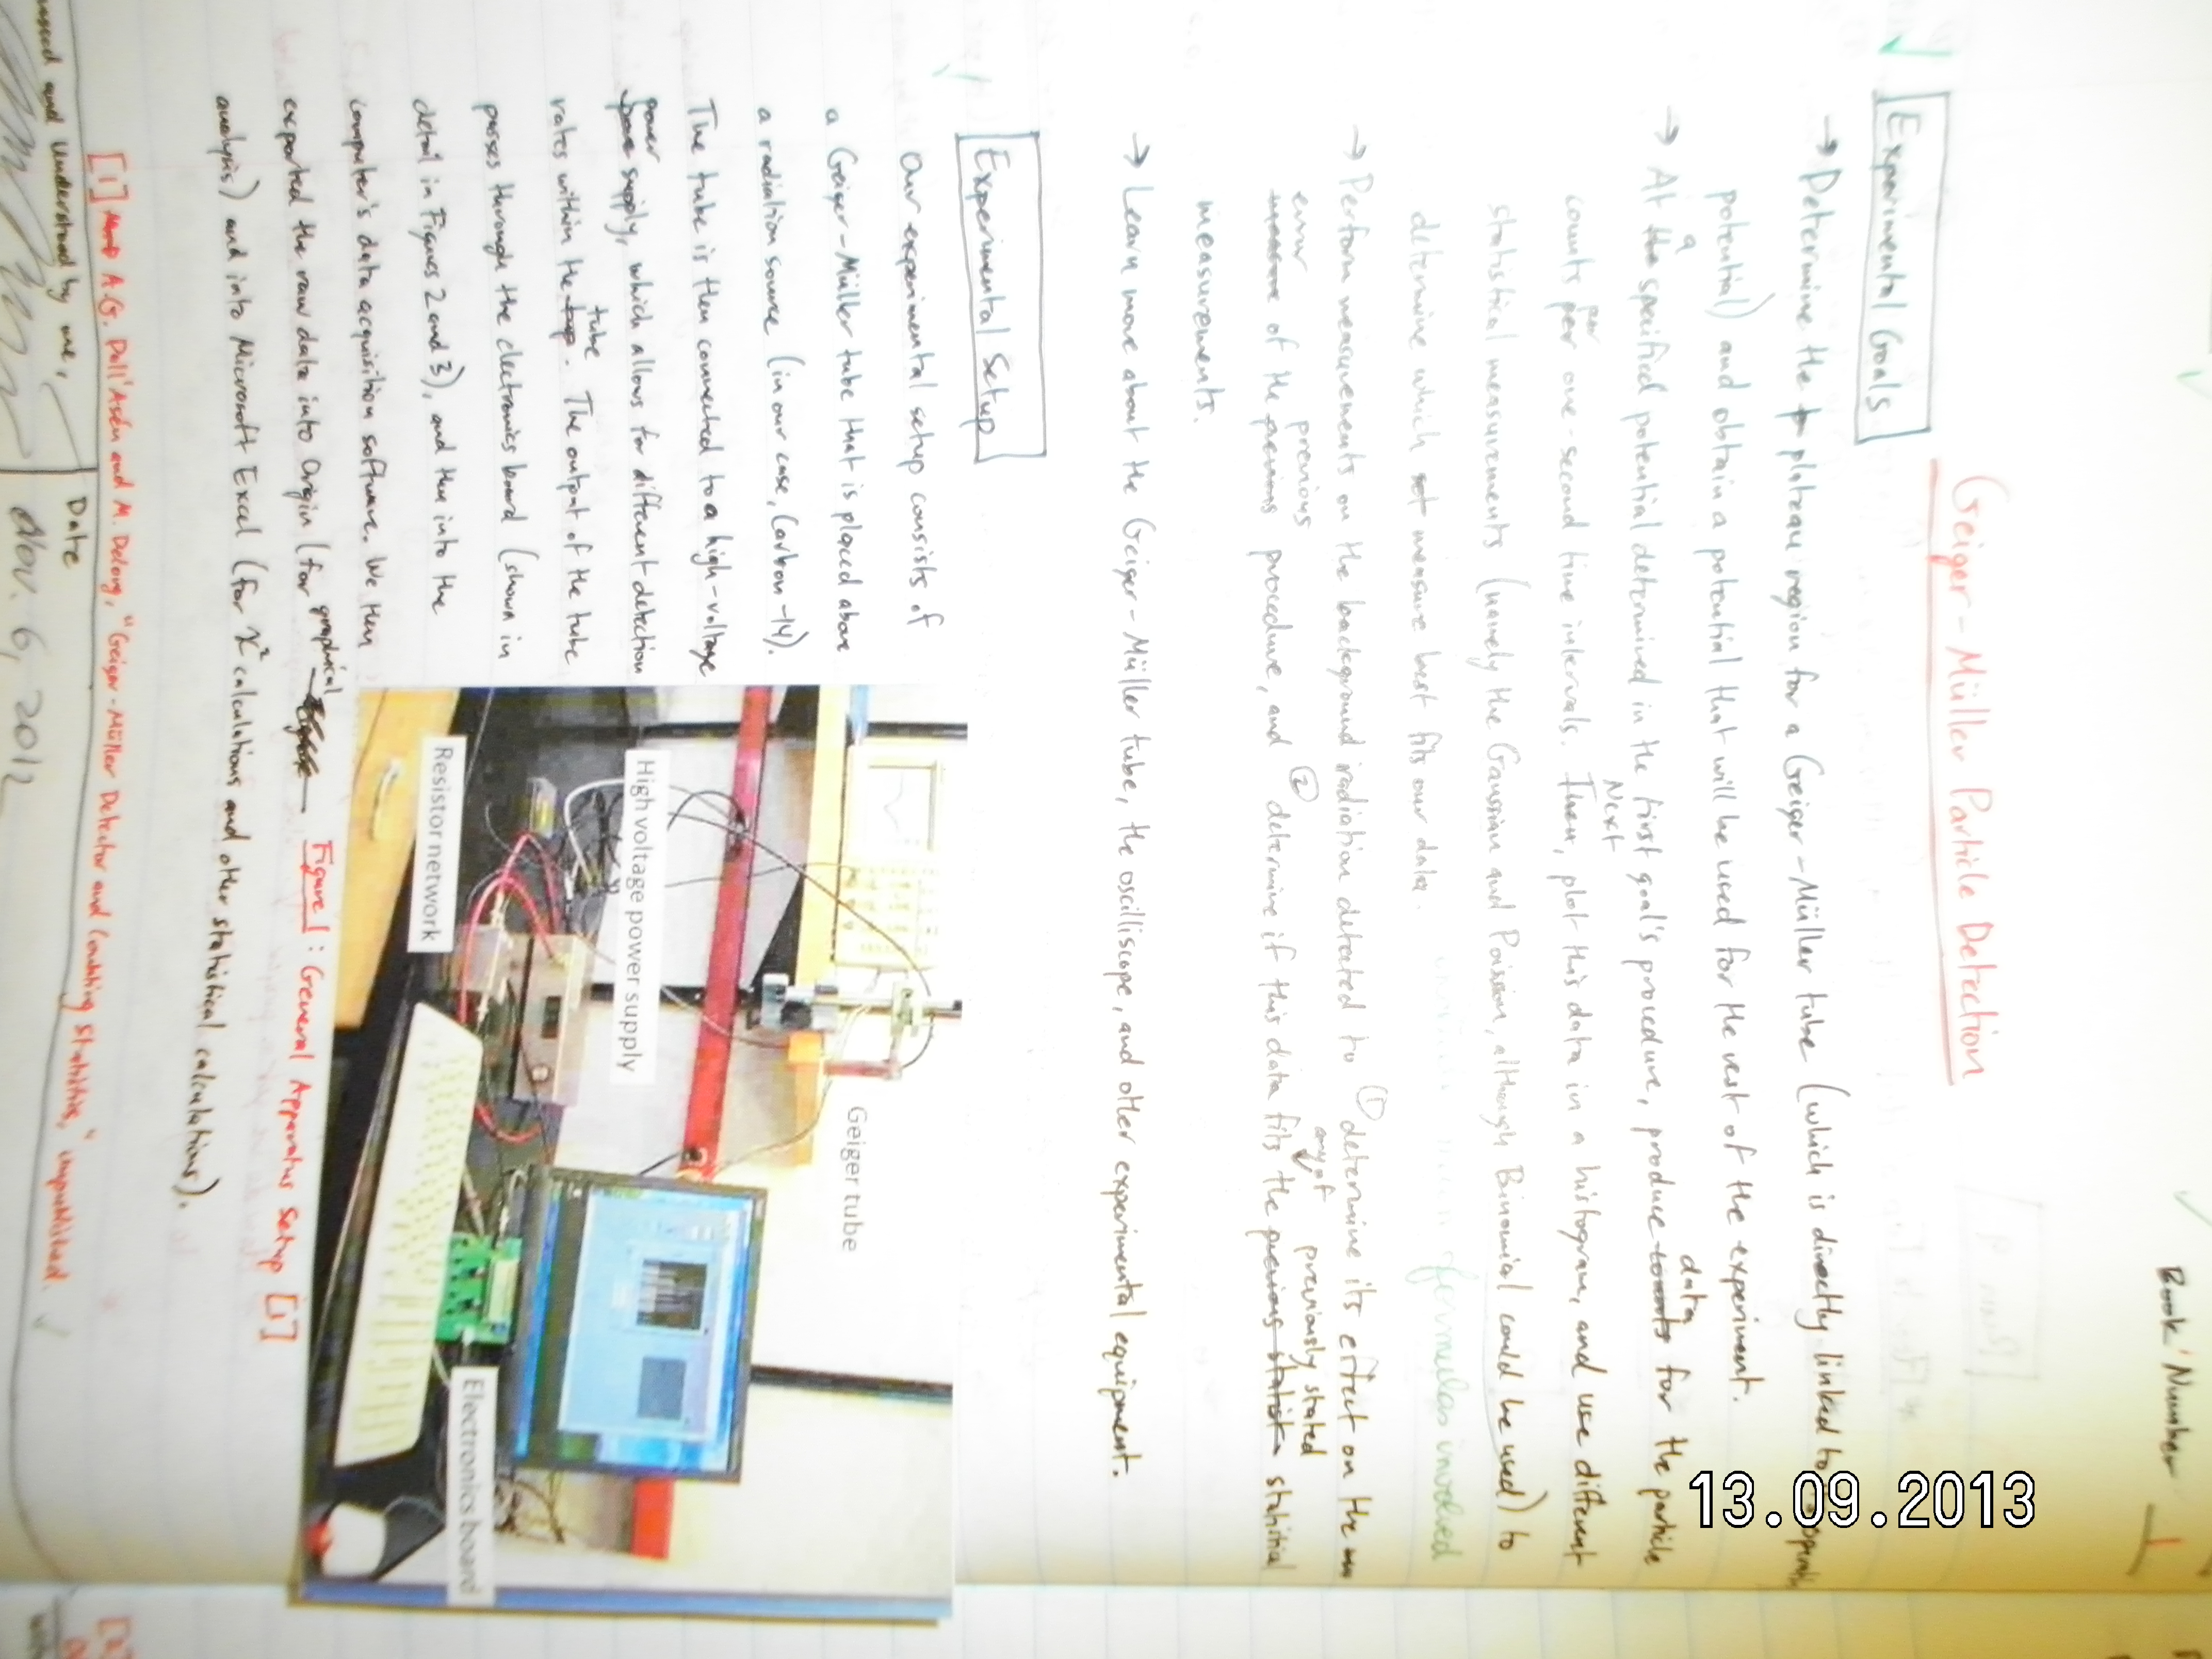 Book Number 1
Geiger-Müller Particle Detection
Experimental Goals
→ Determine the plateau region for a Geiger-Müller tube (which is directly linked to
potential) and obtain a potential that will be used for the rest of the experiment.
→ At a specified potential determined in the first goal's procedure, produce data for the particle
counts per one-second time intervals. Next, plot this data in a histogram, and use different
statistical measurements (namely the Gaussian and Poission, although Binomial could be used) to
determine which measure best fits our data. formulas involved
→ Perform measurements on the background radiation detected to ① determine its effect on the
error of the previous procedure, and ② determine if this data fits any of the previously stated statistical
measurements.
→ Learn more about the Geiger-Müller tube, the oscilliscope, and other experimental equipment.
Experimental Setup
Our experimental setup consists of
a Geiger-Müller tube that is placed above
a radiation source (in our case, Carbon-14).
The tube is then connected to a high-voltage
power supply, which allows for different detection
rates within the tube. The output of the tube
passes through the electronics board (shown in
detail in Figures 2 and 3), and then into the
computer's data acquisition software. We then
exported the raw data into Origin (for graphical
analysis) and into Microsoft Excel (for χ² calculations and other statistical calculations).
Geiger tube
High voltage power supply
Resistor network
Electronics board
Figure 1: General Apparatus Setup [1]
[1] A.G. Dall'Asén and M. Delong, "Geiger-Müller Detector and Counting Statistics," unpublished.
and Understood by me,
Date
Nov. 6, 2012
13.09.2013